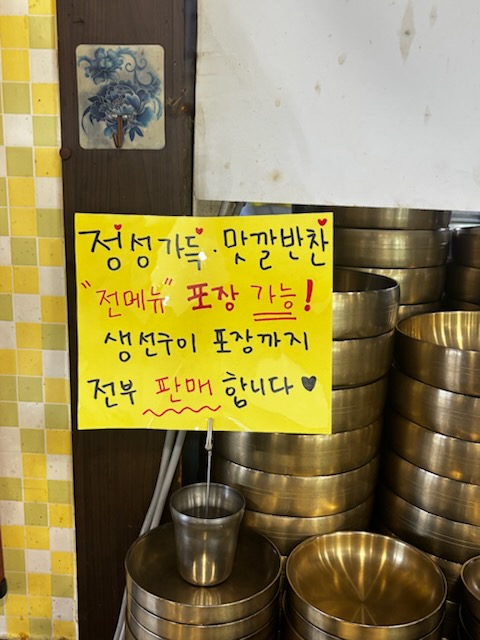 정성가득·맛깔반찬
"전메뉴" 포장 가능!
생선구이 포장까지
전부 판매 합니다♥